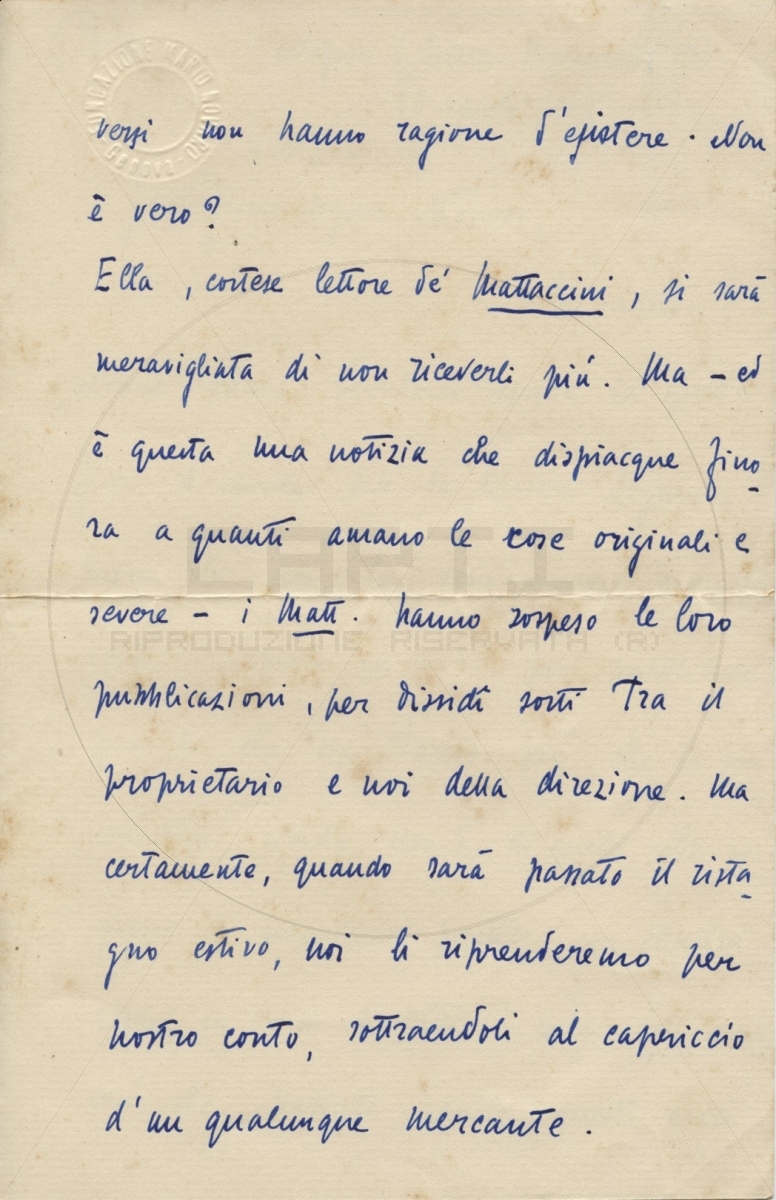 FONDAZIONE MARIO NOVARO
GENOVA
versi non hanno ragione d'esistere. Non
è vero?
Ella, cortese lettore de' Mattaccini, si sarà
meravigliata di non riceverli più. Ma – ed
è questa una notizia che dispiacque fino
ra a quanti amano le cose originali e
severe – i Matt. hanno sospeso le loro
pubblicazioni, per dissidî sorti tra il
proprietario e noi della direzione. Ma
certamente, quando sarà passato il rista
gno estivo, noi li riprenderemo per
nostro conto, sottraendoli al capriccio
d'un qualunque mercante.
CARTI
RIPRODUZIONE RISERVATA (R)